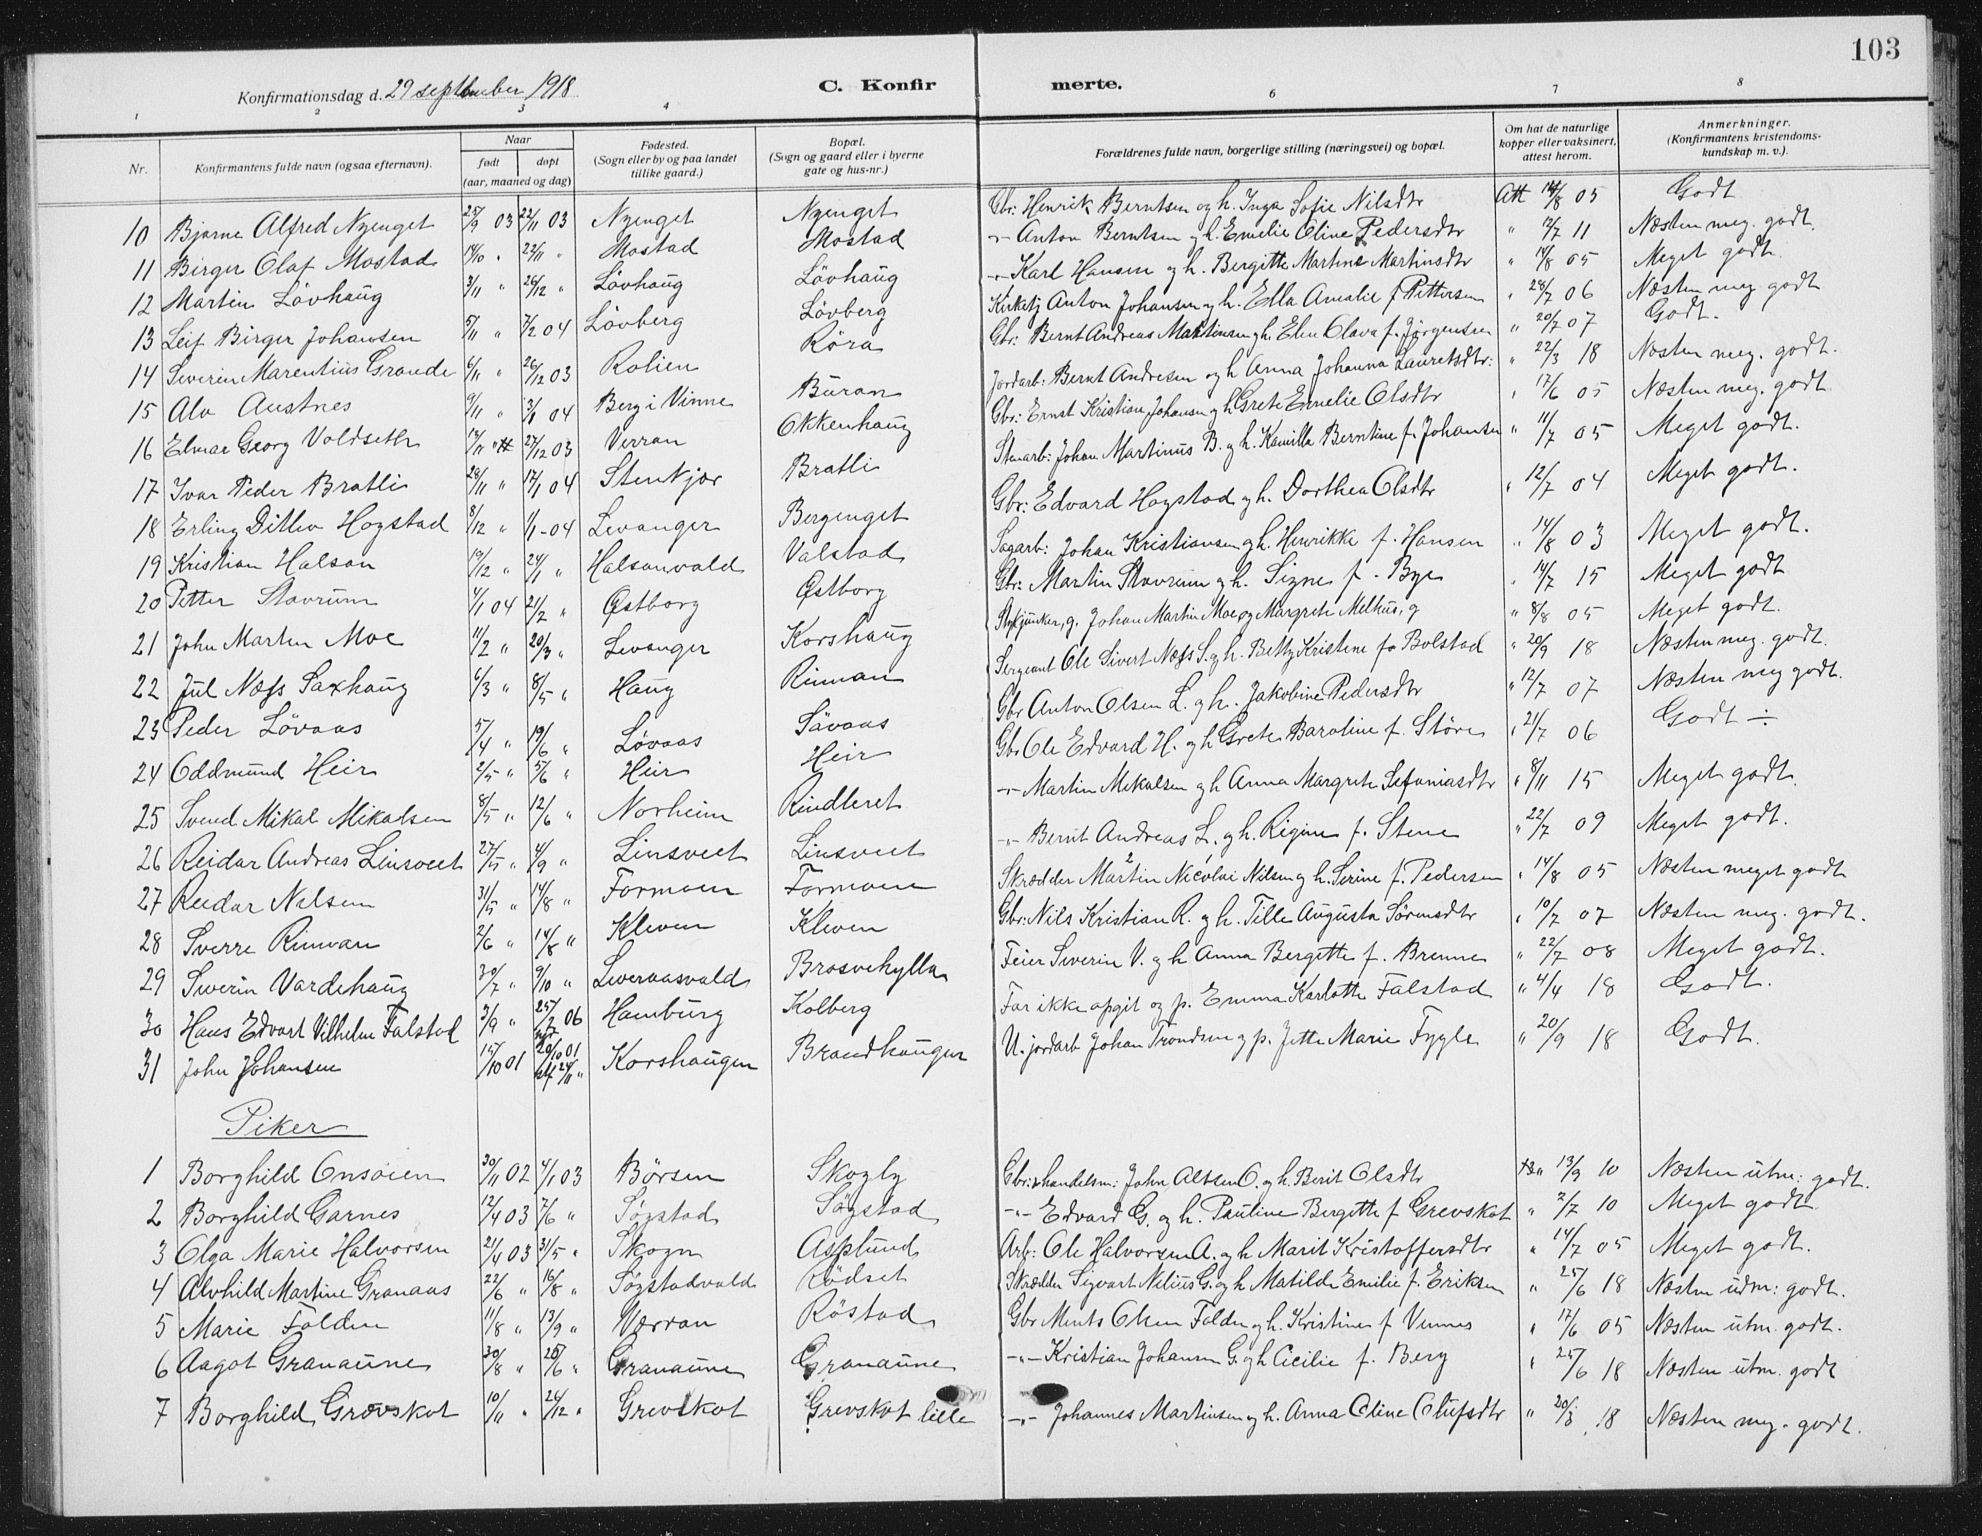 103
Konfirmationsdag d. 29 september 1918 C. Konfir merte.
1 2 3 4 6 7 8
Nr. Konfirmantens fulde navn (ogsaa efternavn). Naar født døpt (aar, maaned og dag) Fødested. (Sogn eller by og paa landet tillike gaard.) Bopæl. (Sogn og gaard eller i byerne gate og hus-nr.) Forældrenes fulde navn, borgerlige stilling (næringsvei) og bopæl. Om hat de naturlige kopper eller vaksinert, attest herom. Anmerkninger. (Konfirmantens kristendoms-kundskap m. v.).
10 Bjarne Alfred Nyenget 25/9 03 22/11 03 Nyenget Nyenget Gbr: Henrik Berntsen og h. Inga Sofie Nilsdtr Att 14/8 05 Godt
11 Birger Olaf Mostad 14/10 " 22/11 " Mostad Mostad -"- Anton Berntsen og h. Emelie Oline Pedersdtr " 12/7 11 Næsten meg. godt
12 Martin Lövhaug 3/11 " 26/12 " Lövhaug Lövhaug -"- Karl Hansen og h. Bergitte Martine Martinsdtr " 14/8 05 Meget godt.
13 Leif Birger Johansen 5/11 " 7/2 04 Lövberg Lövberg Kirketj Anton Johansen og h. Ella Amalie f Pettersen " 28/7 06 Næsten meg godt
14 Severin Marentius Grande 6/11 " 26/12 03 Rolien Röra Gbr: Bernt Andreas Martinsen og h. Elen Olava f. Jörgensen " 20/7 07 Godt.
15 Alv Austnes 9/11 " 3/1 04 Berg i Vinne Buran Jordarb: Bernt Andresen og h Anna Johanna Lauretsdtr: " 22/3 18 Næsten meg. godt.
16 Elmar Georg Voldseth 14/11 " 27/12 03 Verran Okkenhaug Gbr: Ernst Kristian Johansen og h Grete Emelie Olsdtr " 17/6 05 Næsten meg. godt.
17 Ivar Peder Bratli 28/11 " 17/1 04 Stenkjær Bratli Stenarb: Johan Martinus B. og h. Kamilla Berntine f. Johansen " 11/7 05 Meget godt.
18 Erling Ditlev Hogstad 8/12 " 1/1-04 Levanger Bergenget Gbr: Edvard Hogstad og h. Dorthea Olsdtr " 12/7 04 Meget godt.
19 Kristian Halsan 19/12 " 24/1 " Halsanvald Valstad Sagarb: Johan Kristiansen og h. Henrikke f. Hansen " 14/8 03 Meget godt.
20 Petter Stavrum 4/1 04 21/2 " Østborg Østborg Gbr: Martin Stavrum og h. Signe f. Bye " 14/7 15 Meget godt
21 John Martin Moe 11/2 " 20/3 " Levanger Korshaug Stykjunker, g. Johan Martin Moe og Margrete Melhus, g " 8/8 05 Meget godt.
22 Jul Næss Saxhaug 6/3 " 8/5 " Haug Rinnan Sergeant Ole Sivert Næss S. og h. Betty Kristine fø Bolstad " 20/9 18 Næsten meg. godt.
23 Peder Lövaas 5/4 " 19/6 " Lövaas Lövaas Gbr Anton Olsen L. og h. Jakobine Pedersdtr " 12/7 07 Næsten meg godt.
24 Oddmund Heir 2/5 " 5/6 " Heir Heir Gbr Ole Edvard H. og h Grete Baroline f. Störe " 21/7 06 Godt ÷
25 Svend Mikal Mikalsen 8/5 " 12/6 " Norheim Rindleret -"- Martin Mikalsen og h Anna Margrete Sefaniasdtr " 8/11 15 Meget godt.
26 Reidar Andreas Linsveet 27/5 " 4/9 " Linsveet Linsveet -"- Bernt Andreas L. og h. Regine f. Stene " 22/7 09 Meget godt.
27 Reidar Nilsen 31/5 " 14/8 " Formoen Formoen Skrædder Martin Nicolai Nilsen og h. Serine f. Pedersen " 14/8 05 Næsten meget godt
28 Sverre Rinnan 2/6 " 14/8 " Kleven Kleven Gbr: Nils Kristian R. og h. Tille Augusta Sörensdtr " 10/7 07 Næsten meg. godt.
29 Severin Vardehaug 30/7 " 9/10 " Leveraasvald Brosvehylla Feier Severin V. og h Anna Bergitte f. Brenne " 22/7 08 Meget godt.
30 Hans Edvart Vilhelm Falstad 3/9 " 25/2 06 Hamburg Kolberg Far ikke opgit og p. Emma Karlotte Falstad " 4/4 18 Godt.
31 John Johansen 15/10 01 20/10 01 24/11 " Korshaugen Brandhaugen U. jordarb Johan Trondsen og p. Jette Marie Fygle " 20/9 18 Godt.
Piker
1 Borghild Onsöien 30/11 02 4/1 03 Börsen Skogly Gbr: & handelsm: John Altsen O. og h. Berit Olsdtr " 13/9 10 Næsten utm: godt.
2 Borghild Garnes 12/4 03 7/6 " Søgstad Søgstad -"- Edvard G. og h. Pauline Bergitte f Grevskot " 2/7 10 Meget godt
3 Olga Marie Halvorsen 21/4 03 31/5 " Skogn Asplund Arb: Ole Halvorsen A. og h Marit Kristoffersdtr " 14/7 05 Meget godt.
4 Alvhild Martine Granaas 22/6 " 16/8 " Søgstadvald Rödset Skrædder Sigvart Nelius G. og h Matilde Emilie f. Eriksen " 25/6 18 Næsten udm: godt.
5 Marie Folden 11/8 " 13/9 " Værran Röstad Gbr Ments Olsen Folden og h. Kristine f Vennes " 17/6 05 Næsten utm. godt.
6 Aagot Granaune 30/8 " 25/6 " Granaune Granaune -"- Kristian Johansen G. og h Cicilie f. Berg " 25/6 18 Næsten utm. godt
7 Borghild Grevskot 10/11 " 26/12 " Grevskot Grevskot lille -"- Johannes Martinsen og h. Anna Oline Olufsdtr " 20/3 18 Næsten meg. godt.